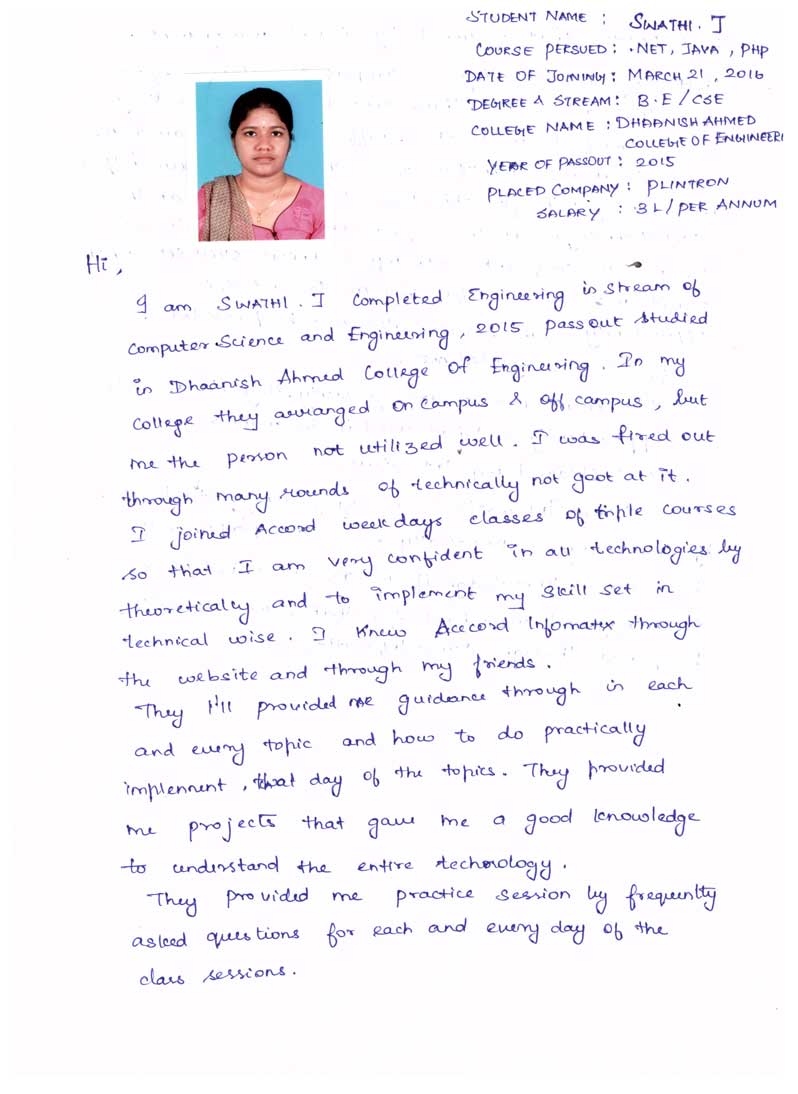 STUDENT NAME : SWATHI . J
COURSE PERSUED : .NET, JAVA , PHP
DATE OF JOINING : MARCH 21 , 2016
DEGREE & STREAM : B.E / CSE
COLLEGE NAME : DHAANISH AHMED
COLLEGE OF ENGINEERI
YEAR OF PASSOUT : 2015
PLACED COMPANY : PLINTRON
SALARY : 3 L / PER ANNUM
Hi ,
I am SWATHI . J Completed Engineering in stream of
Computer Science and Engineering , 2015 pass out studied
in Dhaanish Ahmed College of Engineering . In my
College they arranged on campus & off campus , but
me the person not utilized well . I was fired out
through many rounds of technically not goot at it .
I joined Accord week days classes of triple courses
so that I am very confident in all technologies by
theoretically and to implement my skill set in
technical wise . I Knew Accord Infomatix through
the website and through my friends .
They I'll provided me guidance through in each
and every topic and how to do practically
implement , that day of the topics . They provided
me projects that gave me a good knowledge
to understand the entire technology .
They provided me practice session by frequently
asked questions for each and every day of the
class sessions .